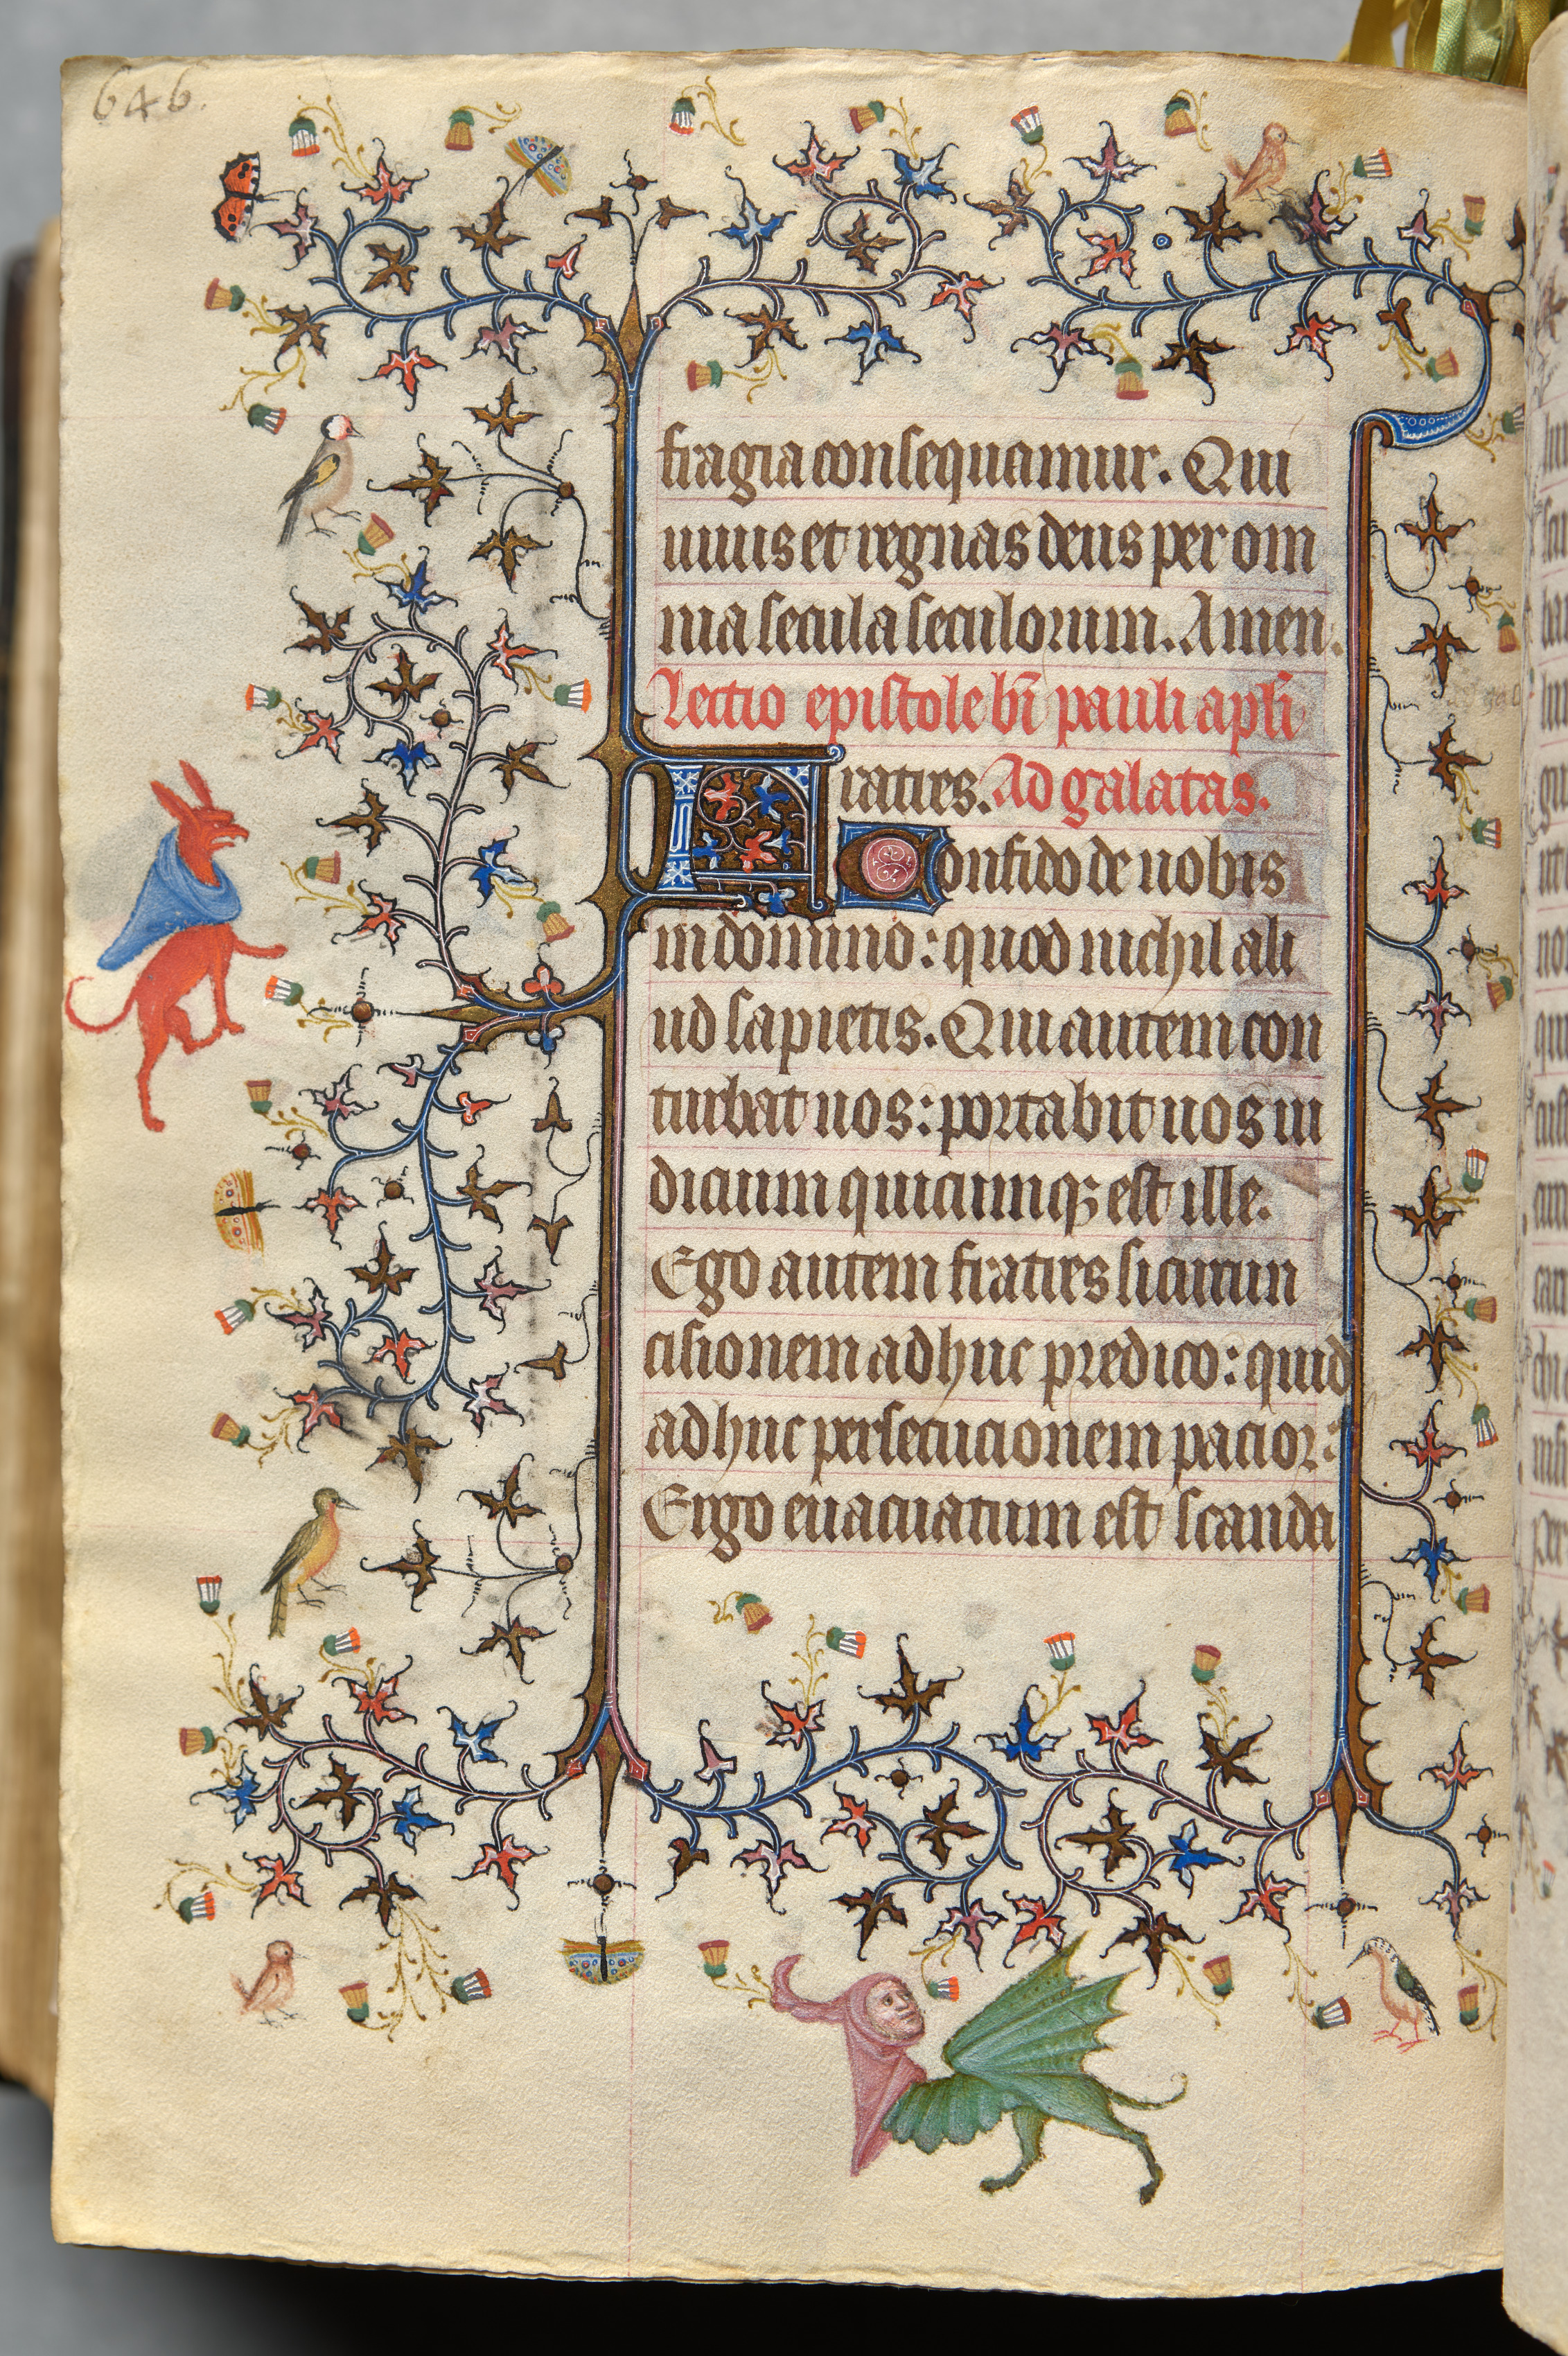 646.
fragia consequamur. Qui
uiuis et regnas deus per om
nia secula seculorum. Amen.
Lectio epistole bi pauli apli
Fratres. Ad galatas.
Confido de uobis
in domino: quod nichil ali
ud sapietis. Qui autem con
turbat uos: portabit uos iu
dicium quicumqꝫ est ille.
Ego autem fratres si circun
cisionem adhuc predico: quid
adhuc persecucionem pacior:
Ergo euacuatum est scanda